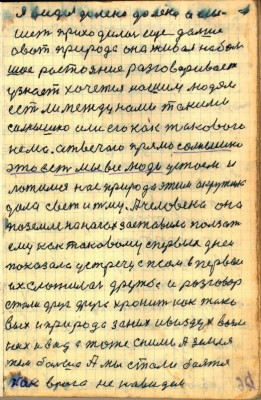 Я видел далеко далеко а слы-
шет приходилос еще далше
а вот природа она живая на бол
шое растояние разговаривает
узнает хочется нашим людям
ест ли между нами такими
солнышко или его как такового
нема. а твечаю прямо солнышко
это ест мы все люди устоем и
ложимся нас природа этим окружила
дала свет и тму. А человека она
по земле на ногах заставила ползат
ему как таковому с первых дней
показала устречу с псом в первые
их сложилас дружба и разговор
стали друг друга хронит как тако
вых и природа за них и воздух возле
них и вода а тоже с ними А земля
тем более А мы стали боятся
как врага не навидим